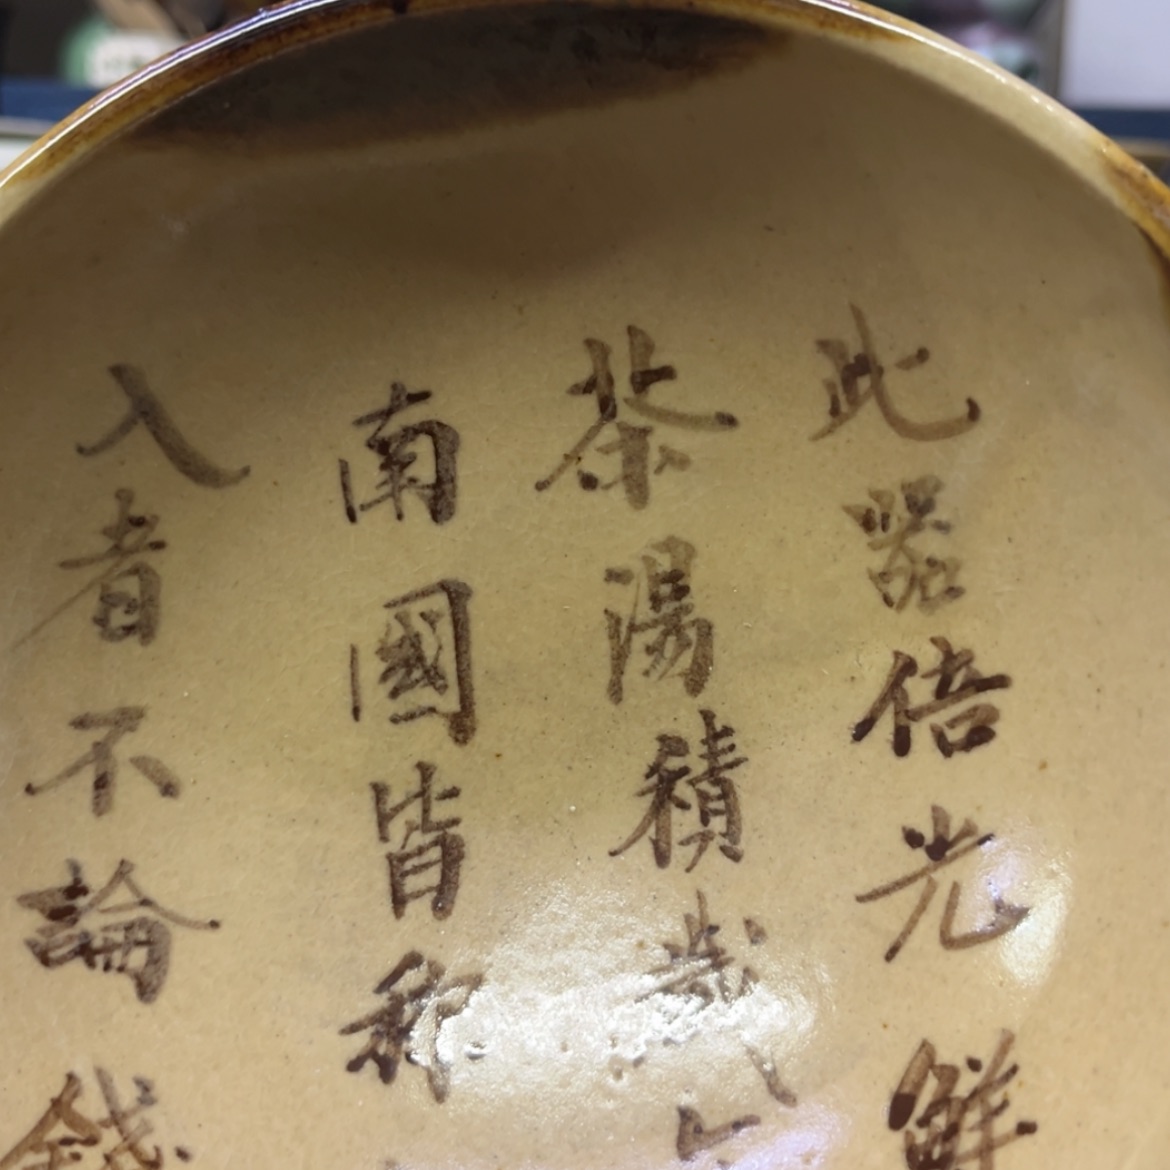 此器倍光鮮
茶湯積歲
南國皆稱
入者不論錢